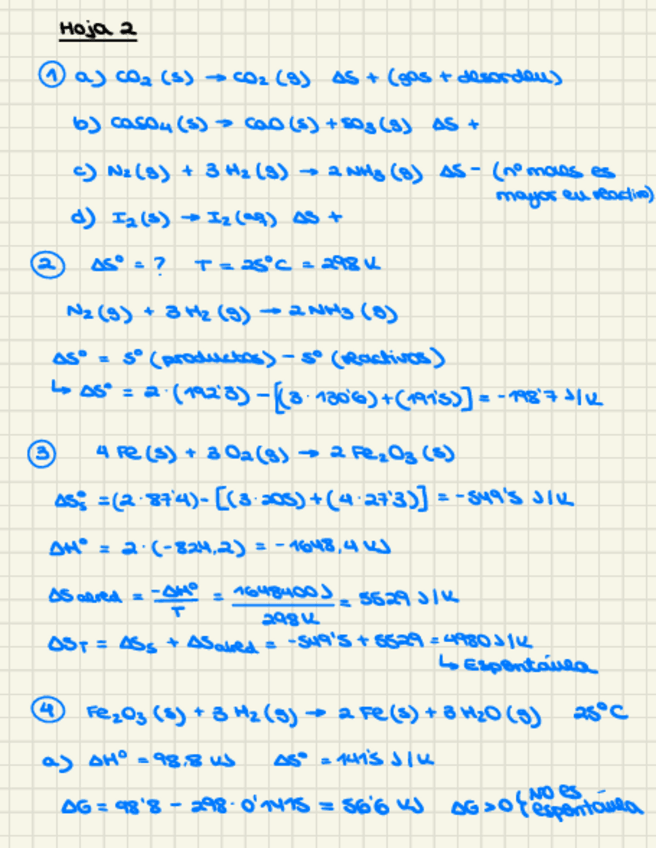 Hoja 2
① a) CO₂ (s) → CO₂ (g) ΔS + (gas + desorden)
b) CaSO₄ (s) → CaO (s) + SO₃ (g) ΔS +
c) N₂ (g) + 3 H₂ (g) → 2 NH₃ (g) ΔS - (nº moles es
mayor en reactivo)
d) I₂ (s) → I₂ (aq) ΔS +
② ΔSº = ? T = 25ºC = 298 K
N₂ (g) + 3 H₂ (g) → 2 NH₃ (g)
ΔSº = Sº (productos) - Sº (reactivos)
↳ ΔSº = 2 · (192'3) - [(3 · 130'6) + (191'5)] = -198'7 J/K
③ 4 Fe (s) + 3 O₂ (g) → 2 Fe₂O₃ (s)
ΔSºs = (2 · 87'4) - [(3 · 205) + (4 · 27'3)] = -549'5 J/K
ΔHº = 2 · (-824,2) = -1648,4 kJ
ΔSalred = -ΔHº/T = 1648400 J/298 K = 5529 J/K
ΔST = ΔSs + ΔSalred = -549'5 + 5529 = 4980 J/K
↳ Espontánea
④ Fe₂O₃ (s) + 3 H₂ (g) → 2 Fe (s) + 3 H₂O (g) 25ºC
a) ΔHº = 98,8 kJ ΔSº = 141'5 J/K
ΔG = 98'8 - 298 · 0'1415 = 56'6 kJ ΔG > 0 { NO es
espontánea